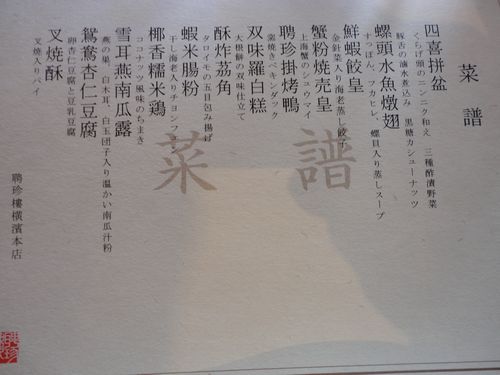 菜譜
四喜拼盆
くらげ頭のニンニク和え 三種酢漬野菜
豚舌の滷水煮込み 黒糖カシューナッツ
螺頭水魚燉翅
すっぽん、フカヒレ、螺貝入り蒸しスープ
鮮蝦餃皇
金針菜入り海老蒸し餃子
蟹粉焼売皇
上海蟹のシュウマイ
聘珍掛烤鴨
窯焼きペキンダック
双味羅白糕
大根餅の双味仕立て
酥炸荔角
タロイモの五目包み揚げ
蝦米腸粉
干し海老入りチョンファン
椰香糯米鶏
ココナッツ風味のちまき
雪耳燕南瓜露
燕の巣、白木耳、白玉団子入り温かい南瓜汁粉
鴛鴦杏仁豆腐
卵杏仁豆腐と豆乳豆腐
叉焼酥
叉焼入りパイ
聘珍樓横濱本店
菜譜